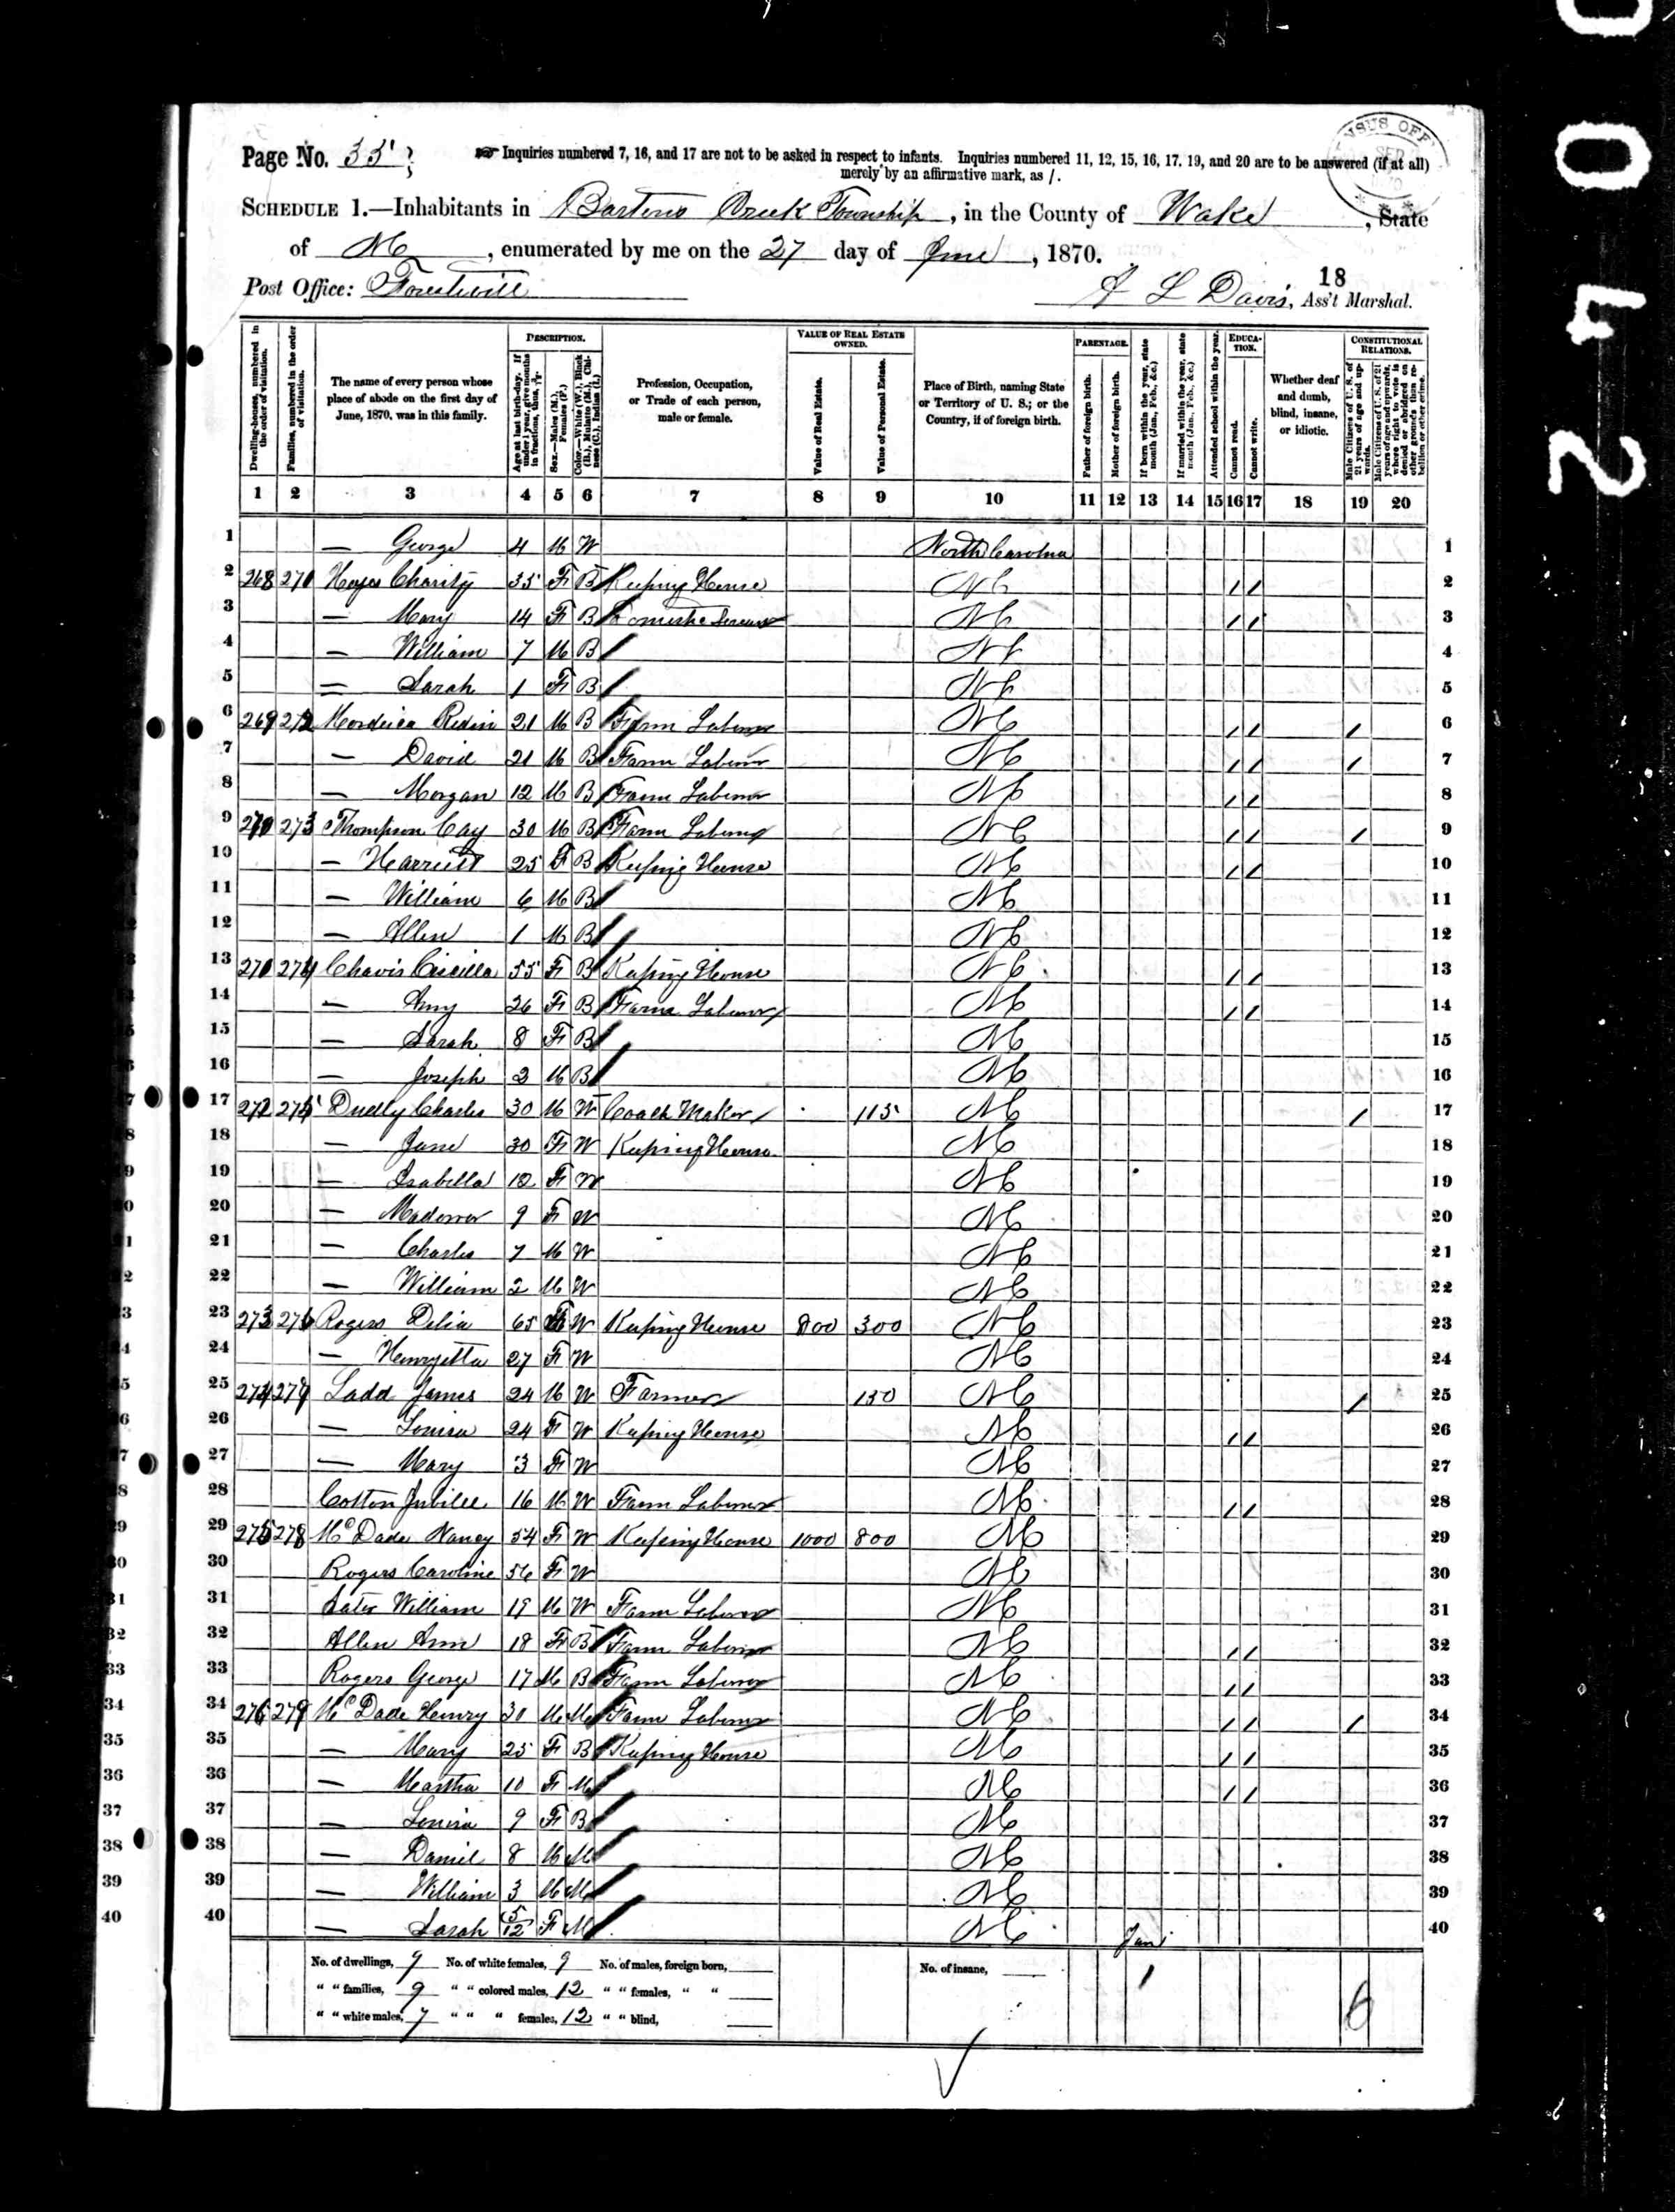 Page No. 35
Inquiries numbered 7, 16, and 17 are not to be asked in respect to infants. Inquiries numbered 11, 12, 15, 16, 17, 19, and 20 are to be answered (if at all)
merely by an affirmative mark, as /.
SCHEDULE 1.—Inhabitants in Bartons Creek Township, in the County of Wake, State
of NC, enumerated by me on the 27 day of June, 1870.
18
Post Office: Forestville A L Davis, Ass't Marshal.
DESCRIPTION. VALUE OF REAL ESTATE OWNED. PARENTAGE. EDUCATION. CONSTITUTIONAL RELATIONS.
Dwelling-houses, numbered in the order of visitation.
Families, numbered in the order of visitation.
The name of every person whose place of abode on the first day of June, 1870, was in this family.
Age at last birth-day. If under 1 year, give months in fractions, thus, 3/12.
Sex.—Males (M.), Females (F.)
Color.—White (W.), Black (B.), Mulatto (M.), Chinese (C.), Indian (I.)
Profession, Occupation, or Trade of each person, male or female.
Value of Real Estate.
Value of Personal Estate.
Place of Birth, naming State or Territory of U. S.; or the Country, if of foreign birth.
Father of foreign birth.
Mother of foreign birth.
If born within the year, state month (Jan., Feb., &c.)
If married within the year, state month (Jan., Feb., &c.)
Attended school within the year.
Cannot read.
Cannot write.
Whether deaf and dumb, blind, insane, or idiotic.
Male Citizens of U. S. of 21 years of age and upwards.
Male Citizens of U. S. of 21 years of age and upwards, where right to vote is denied or abridged on other grounds than rebellion or other crime.
1 2 3 4 5 6 7 8 9 10 11 12 13 14 15 16 17 18 19 20
1 — George 4 M W North Carolina 1
2 268 271 Hayes Charity 35 F B Keeping House NC / / 2
3 — Mary 14 F B Domestic Servant NC / / 3
4 — William 7 M B NC 4
5 — Sarah 1 F B NC 5
6 269 272 21 M B Farm Laborer NC / / / 6
7 — David 21 M B Farm Laborer NC / / / 7
8 — Morgan 12 M B Farm Laborer NC / / 8
9 270 273 Thompson Cay 30 M B Farm Laborer NC / / / 9
10 — Harriett 25 F B Keeping House NC / / 10
11 — William 6 M B NC 11
12 — Allen 1 M B NC 12
13 271 274 Chavis 55 F B Keeping House NC / / 13
14 — Amy 26 F B Farm Laborer NC / / 14
15 — Sarah 8 F B NC 15
16 — Joseph 2 M B NC 16
17 272 275 Charles 30 M W Coach Maker 115 NC / 17
18 — Jane 30 F W Keeping House NC 18
19 — Isabella F W NC 19
20 — 9 F W NC 20
21 — Charles 7 M W NC 21
22 — William 2 M W NC 22
23 273 276 Rogers Delia 65 F W Keeping House 800 300 NC 23
24 — Henryetta 27 F W NC 24
25 274 277 Ladd James 24 M W Farmer 150 NC / 25
26 — Louisa 24 F W Keeping House NC / / 26
27 — Mary 3 F W NC 27
28 Cotton Jubilee 16 M W Farm Laborer NC / / 28
29 275 278 McDade Nancy 54 F W Keeping House 1000 800 NC 29
30 Rogers Caroline 56 F W NC 30
31 William 19 M W Farm Laborer NC 31
32 Allen Ann 18 F B Farm Laborer NC / / 32
33 Rogers George 17 M B Farm Laborer NC / / 33
34 276 279 McDade Henry 30 M M Farm Laborer NC / / / 34
35 — Mary 25 F B Keeping House NC / / 35
36 — Martha 10 F M NC / / 36
37 — Louisa 9 F B NC 37
38 — Daniel 8 M M NC 38
39 — William 3 M M NC 39
40 — Sarah 5/12 F M NC Jan 40
No. of dwellings, 9 No. of white females, 9 No. of males, foreign born, No. of insane,
" " families, 9 " " colored males, 12 " " females, " " 1 6
" " white males, 7 " " " females, 12 " " blind,